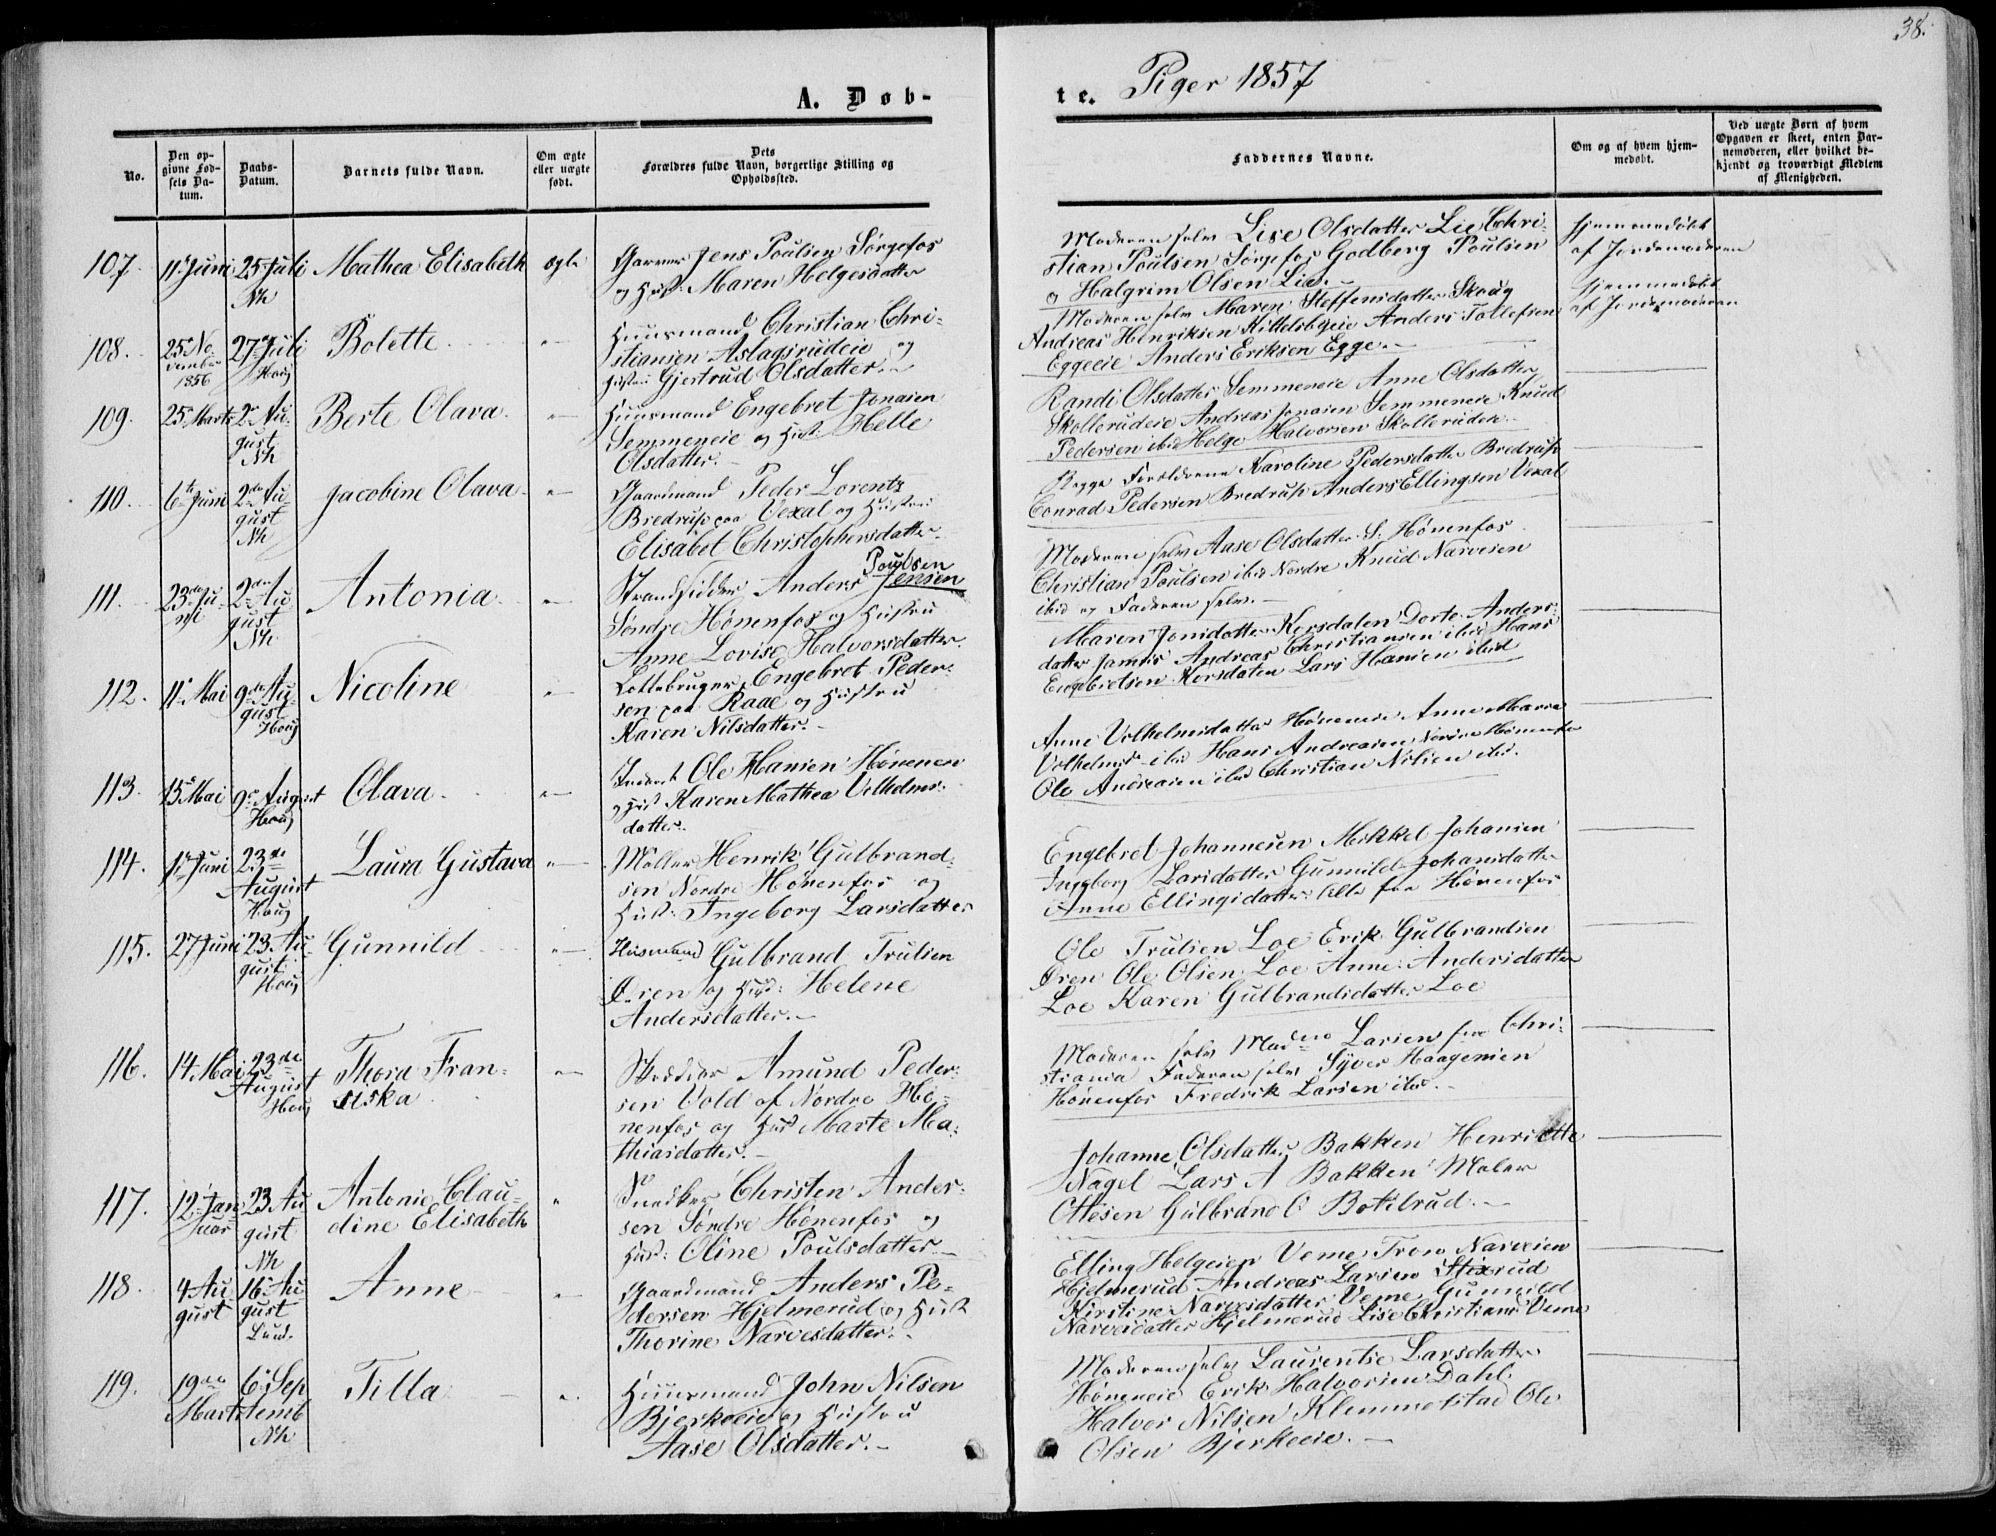 38.
A. Døb-
te. Piger 1857
No.
Den op-
givne Fød-
sels Da-
tum.
Daabs-
Datum.
Barnets fulde Navn.
Om ægte
eller uægte
født.
Dets
Forældres fulde Navn, borgerlige Stilling og
Opholdssted.
Faddernes Navne.
Om og af hvem hjem-
medøbt.
Ved uægte Børn af hvem
Opgaven er skeet, enten Bar-
nemoderen, eller hvilket be-
kjendt og troværdigt Medlem
af Menigheden.
107. 11 Juni 25 Juli Mathea Elisabeth ægte
Nh
Jens Poulsen Sørgefos
og Hust: Maren Helgesdatter
Moderen selv Lise Olsdatter Lie Chri-
stian Poulsen Sørgefos Godberg Poulsen
og Halgrim Olsen Lie.
Hjemmedøbt
af Jordemoderen
108. 25 No- 27 Juli Bolette "
vember Houg
1856
Huusmand Christian Chri-
stiansen Aslagsrudeie og
Hustru Gjertrud Olsdatter.
Moderen selv Maren Steffensdatter Skoug
Andreas Henriksen Kittelsbyeie Anders Tollefsen
Eggeeie Anders Eriksen Egge.
Hjemmedøbt
af Jordemoderen
109. 25 Marts 2 Au- Berte Olava. "
gust
Nh
Huusmand Engebret Jonasen
Semmeneie og Hust: Helle
Olsdatter.
Randi Olsdatter Semmeneie Anne Olsdatter
Skollerudeie Andreas Jonasen Semmeneie Knud
Pedersen ibid Helge Halvorsen Skollerudeie.
110. 6te Juni 2den Au- Jacobine Olava. "
gust
Nh
Gaardmand Peder Lorentz
Bredrup paa Vexal og Hustru
Elisabet Christophersdatter.
Begge Forældrene Karoline Pedersdatter Bredrup
Conrad Pedersen Bredrup Anders Ellingsen Vexal
111. 23de Ju- 2den Au- Antonia. "
ni gust
Nh
Strandsidder Anders Poulsen Jensen
Søndre Hønenfos og Hustru
Anne Lovise Halvorsdatter.
Moderen selv Aase Olsdatter S. Hønenfos
Christian Poulsen ibid Nordre Knud Narvesen
ibid og Faderen selv.
112. 11 Mai 9de Au- Nicoline "
gust
Houg
Lottebruger Engebret Peder-
sen paa Raae og Hustru
Karen Nilsdatter.
Maren Jonsdatter Korsdalen Dorte Anders-
datter Andreas Christiansen ibid Hans
Engebretsen Korsdalen Lars Hansen ibid
113. 15 Mai 9 August Olava. "
Houg
Inderst Ole Hansen Hønenen
og Hust Karen Mathea Vilhelms-
datter.
Anne Vilhelmsdatter Høneneie Anne Marie
Vilhelmsd. ibid Hans Andreasen Nordre Hønenfos
Ole Andreasen ibid Christian Nilsen ibid.
114. 1 Juni 23de Laura Gustava "
August
Houg
Møller Henrik Gulbrand-
sen Nordre Hønenfos og
Hust: Ingeborg Larsdatter
Engebret Johannesen Mikkel Johansen
Ingeborg Larsdatter Gunnild Johansdatter
Anne Ellingsdatter Alle fra Hønenfos
115. 27 Juni 23 Au- Gunnild "
gust
Houg
Huusmand Gulbrand Trulsen
Øren og Hust: Helene
Andersdatter.
Ole Trulsen Loe Erik Gulbrandsen
Øren Ole Olsen Loe Anne Andersdatter
Loe Karen Gulbrandsdatter Loe
116. 14 Mai 23de Thora Fran- "
August siska
Houg
Skrædder Amund Peder-
sen Vold af Nordre Hø-
nenfos og Hust Marte Ma-
thiasdatter.
Moderen selv Madme Larsen fra Chri-
stiania Faderen selv Syver Haagensen
Hønenfos Fredrik Larsen ibid.
117. 12 Jan- 23 Au- Antonie Clau- "
uar gust dine Elisabeth
Nh
Snedker Christen Ander-
sen Søndre Hønenfos og
Hust: Oline Poulsdatter.
Johanne Olsdatter Bakken Henriette
Nagel Lars A Bakken Maler
Ottesen Gulbrand O Botilrud.
118. 4 Au- 16 Au- Anne "
gust gust
Lund.
Gaardmand Anders Pe-
dersen Hjelmerud og Hust
Thorine Narvesdatter.
Elling Helgesen Veme Tron Narvesen
Hjelmerud Andreas Larsen Stixrud
Kirstine Narvesdatter Veme Gunnild
Narvesdatter Hjelmerud Lise Christians Veme
119. 19de 6 Sep- Tilla "
Marts temb
Nh
Huusmand John Nilsen
Bjerkeeie og Hustru
Aase Olsdatter.
Moderen selv Laurentse Larsdatter
Høneneie Erik Halvorsen Dahl
Halvor Nilsen Klemmetstad Ole
Olsen Bjerkeeie.